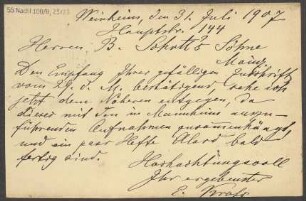 55 Nachl 108/A,
Weinheim, den 31. Juli 1907
Hauptstr. 144
Herren B. Schott's Söhne
Mainz
Den Empfang Ihrer gefälligen Zuschrift
vom 29. d. M. bestätigend, sehe ich
jetzt dem Näheren entgegen, da
dieses mit den in Mannheim auszu-
führenden Aufnahmen zusammenhängt,
und ein paar Hefte Alard bald
fertig sind.
Hochachtungsvoll
Ihr ergebenster
E.